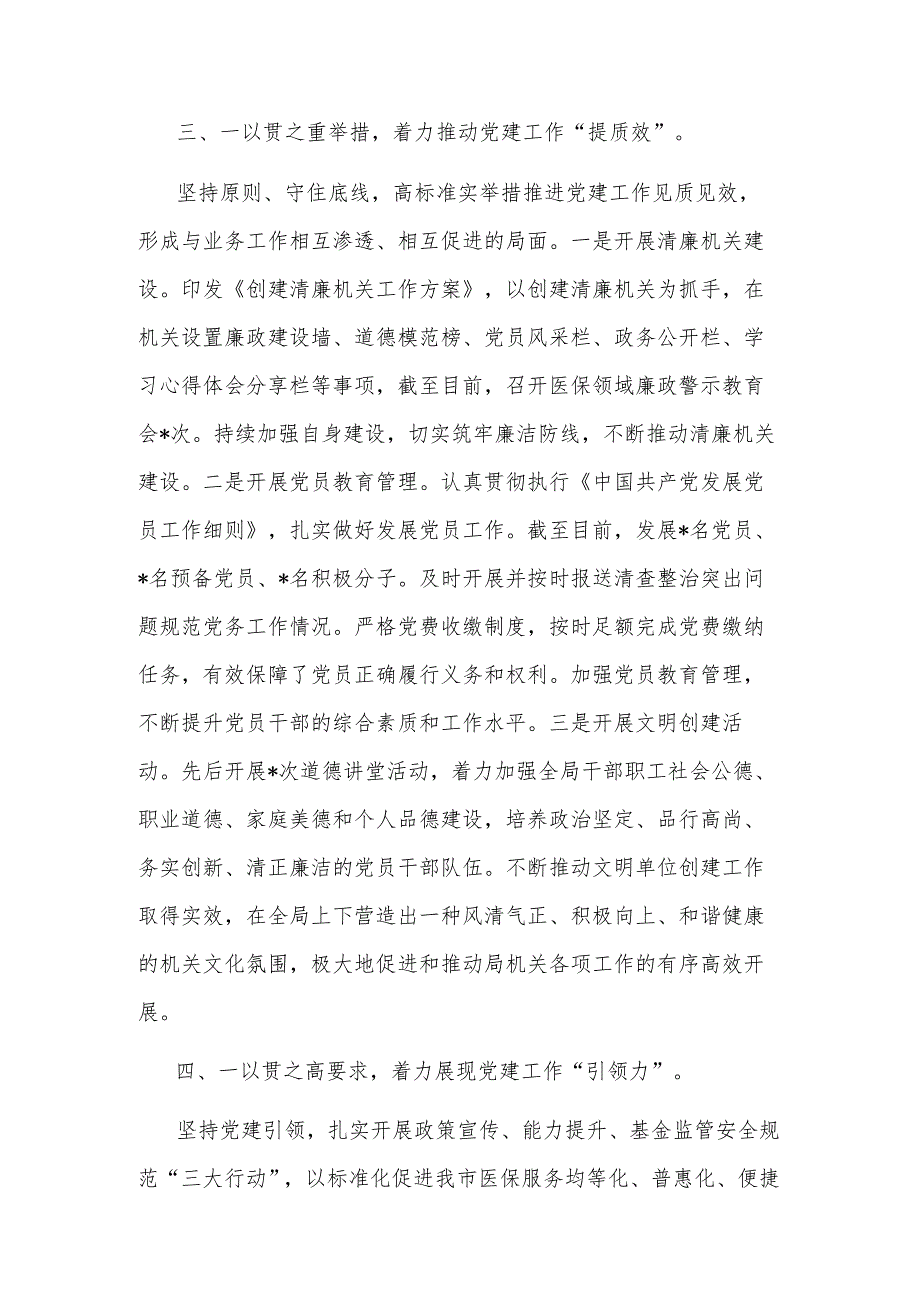 三、一以贯之重举措，着力推动党建工作“提质效”。
坚持原则、守住底线，高标准实举措推进党建工作见质见效，
形成与业务工作相互渗透、相互促进的局面。一是开展清廉机关建
设。印发《创建清廉机关工作方案》，以创建清廉机关为抓手，在
机关设置廉政建设墙、道德模范榜、党员风采栏、政务公开栏、学
习心得体会分享栏等事项，截至目前，召开医保领域廉政警示教育
会*次。持续加强自身建设，切实筑牢廉洁防线，不断推动清廉机关
建设。二是开展党员教育管理。认真贯彻执行《中国共产党发展党
员工作细则》，扎实做好发展党员工作。截至目前，发展*名党员、
*名预备党员、*名积极分子。及时开展并按时报送清查整治突出问
题规范党务工作情况。严格党费收缴制度，按时足额完成党费缴纳
任务，有效保障了党员正确履行义务和权利。加强党员教育管理，
不断提升党员干部的综合素质和工作水平。三是开展文明创建活
动。先后开展*次道德讲堂活动，着力加强全局干部职工社会公德、
职业道德、家庭美德和个人品德建设，培养政治坚定、品行高尚、
务实创新、清正廉洁的党员干部队伍。不断推动文明单位创建工作
取得实效，在全局上下营造出一种风清气正、积极向上、和谐健康
的机关文化氛围，极大地促进和推动局机关各项工作的有序高效开
展。
四、一以贯之高要求，着力展现党建工作“引领力”。
坚持党建引领，扎实开展政策宣传、能力提升、基金监管安全规
范“三大行动”，以标准化促进我市医保服务均等化、普惠化、便捷